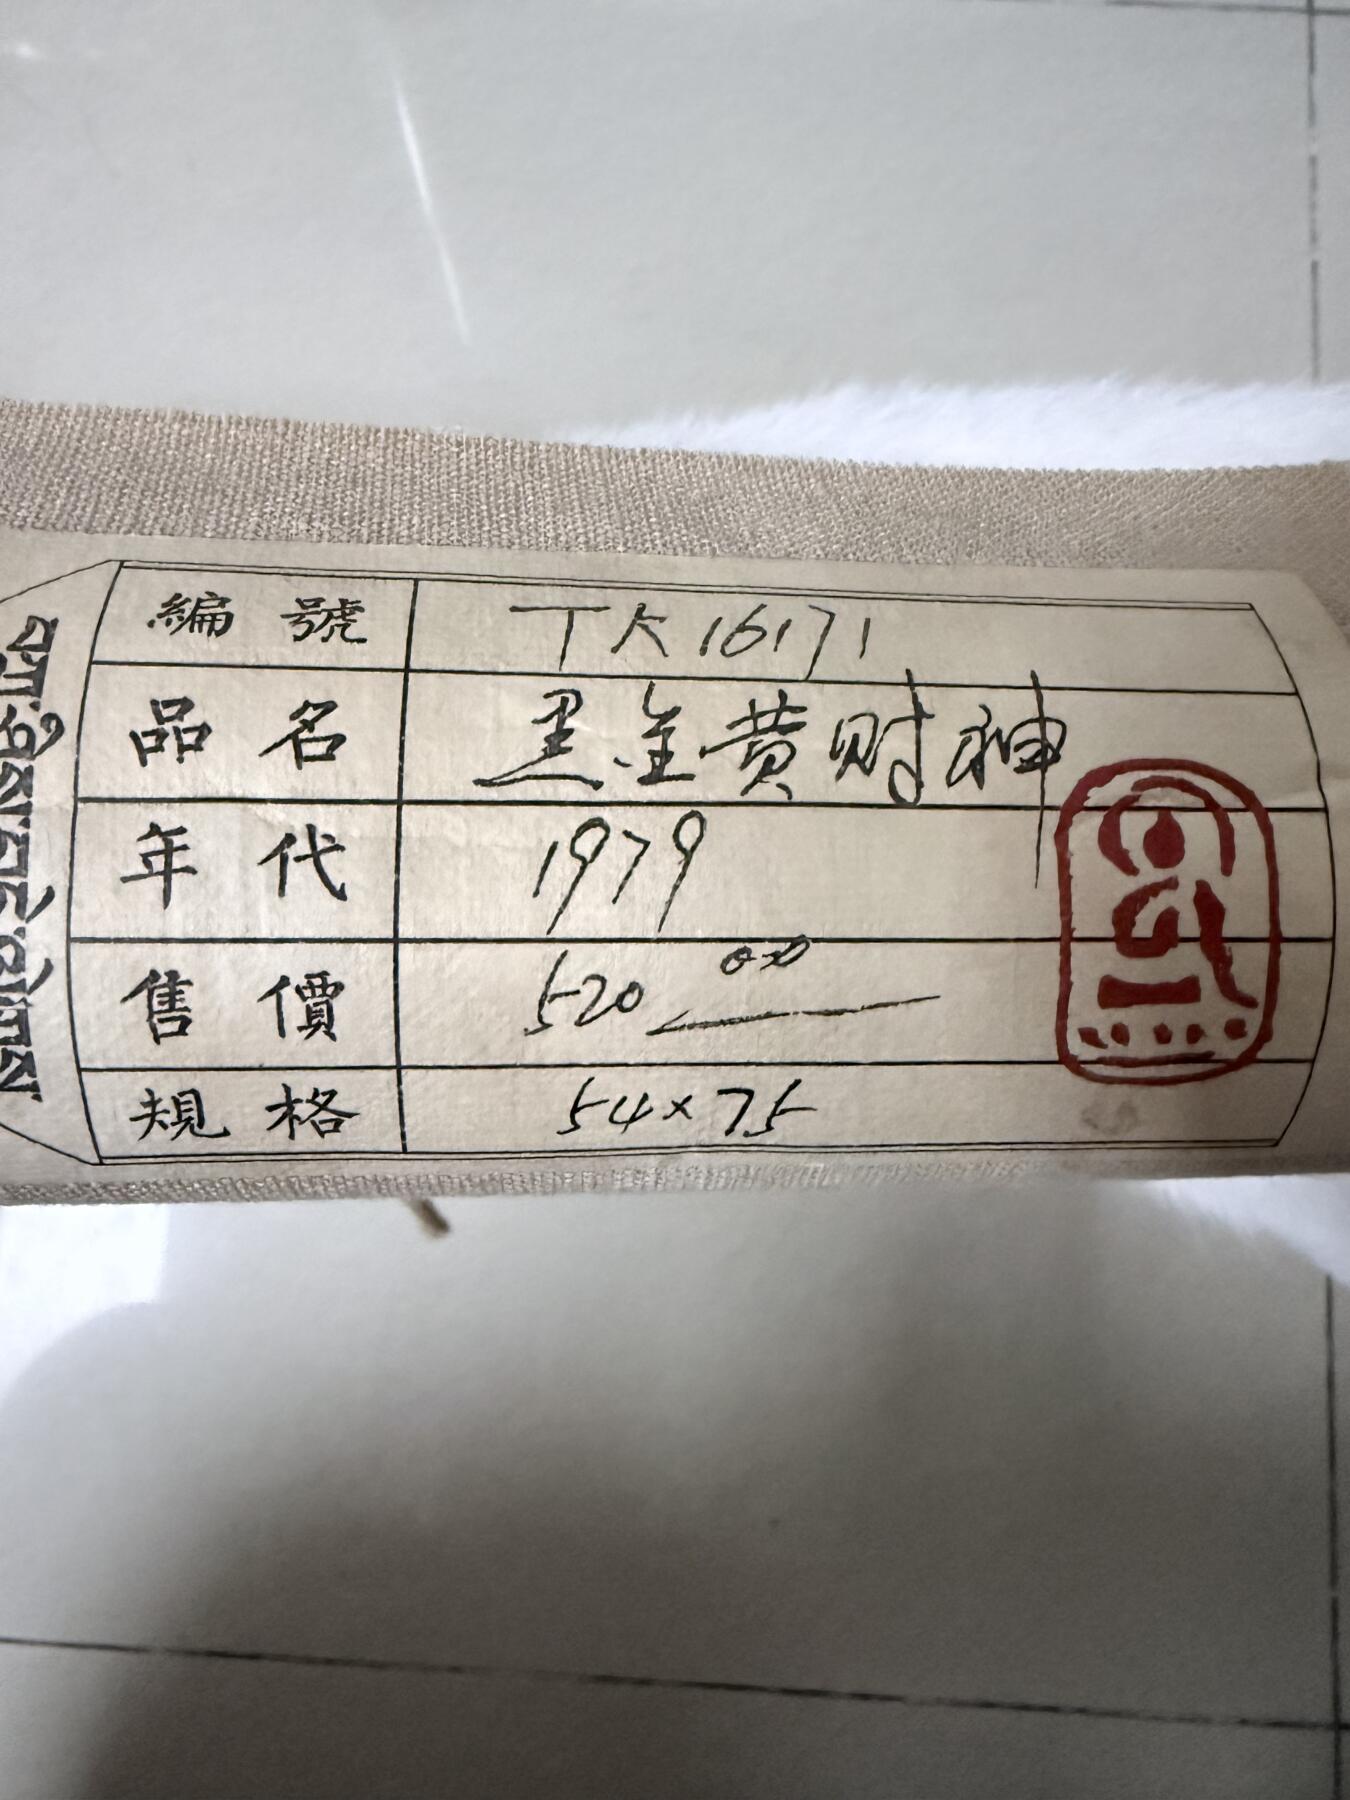 編號 TK16171
品名 黑金黄财神
年代 1979
售價 520.00
規格 54×75